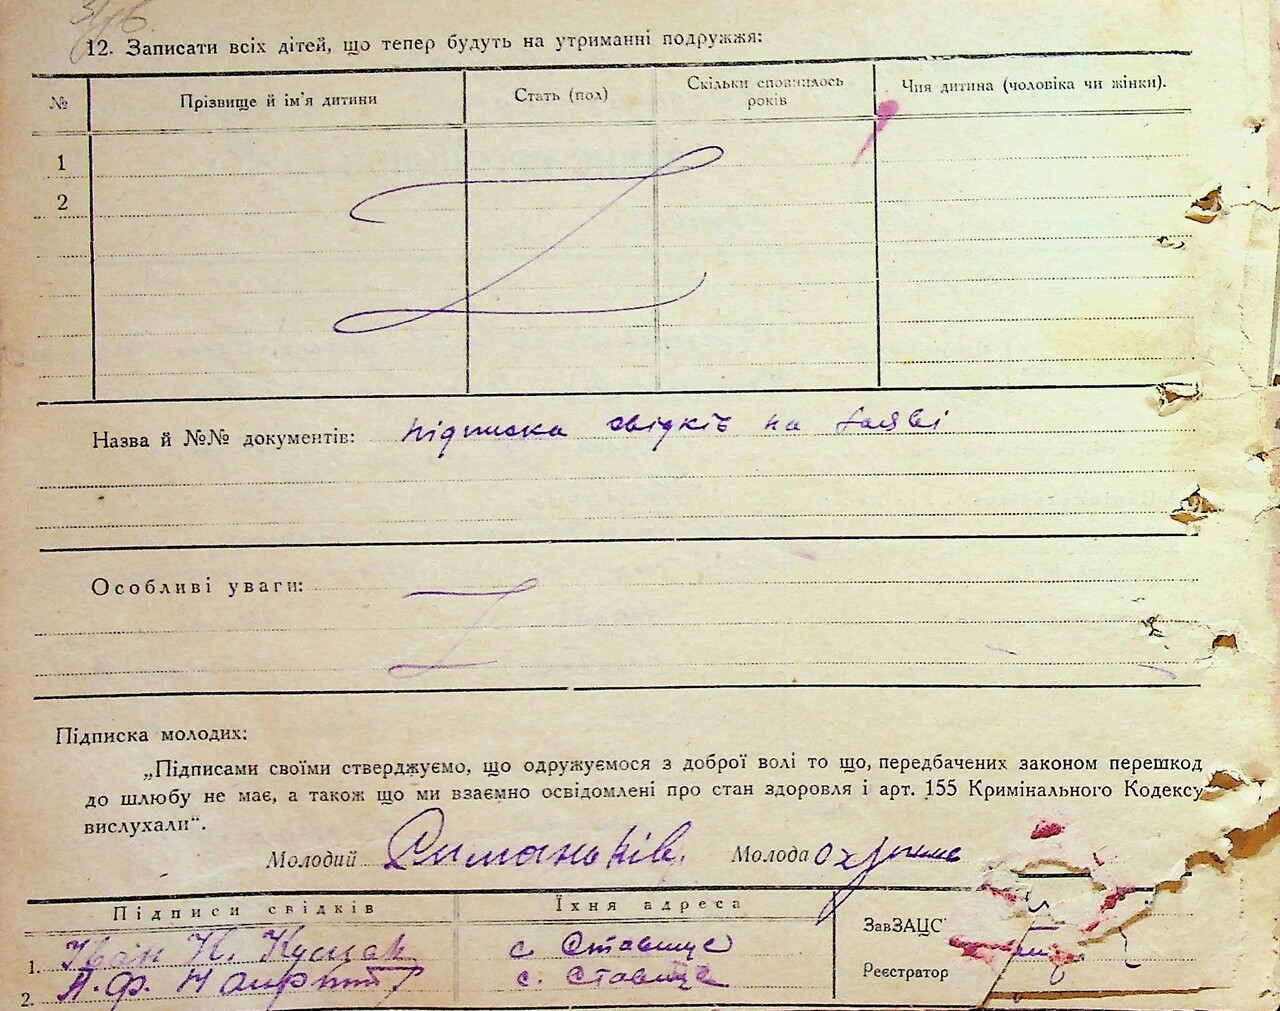 12. Записати всіх дітей, що тепер будуть на утриманні подружжя:
№ Прізвище й ім'я дитини Стать (пол) Скільки сповнилось років Чия дитина (чоловіка чи жінки).
1
2
Назва й №№ документів: підписка свідків на заяві
Особливі уваги:
Підписка молодих:
„Підписами своїми стверджуємо, що одружуємося з доброї волі то що, передбачених законом перешкод
до шлюбу не має, а також що ми взаємно освідомлені про стан здоровля і арт. 155 Кримінального Кодексу
вислухали“.
Молодий Симаньків. Молода
Підписи свідків Їхня адреса
ЗавЗАЦС
1. Іван К. с. Ставище
Реєстратор
2. А. Ф. с. Ставище